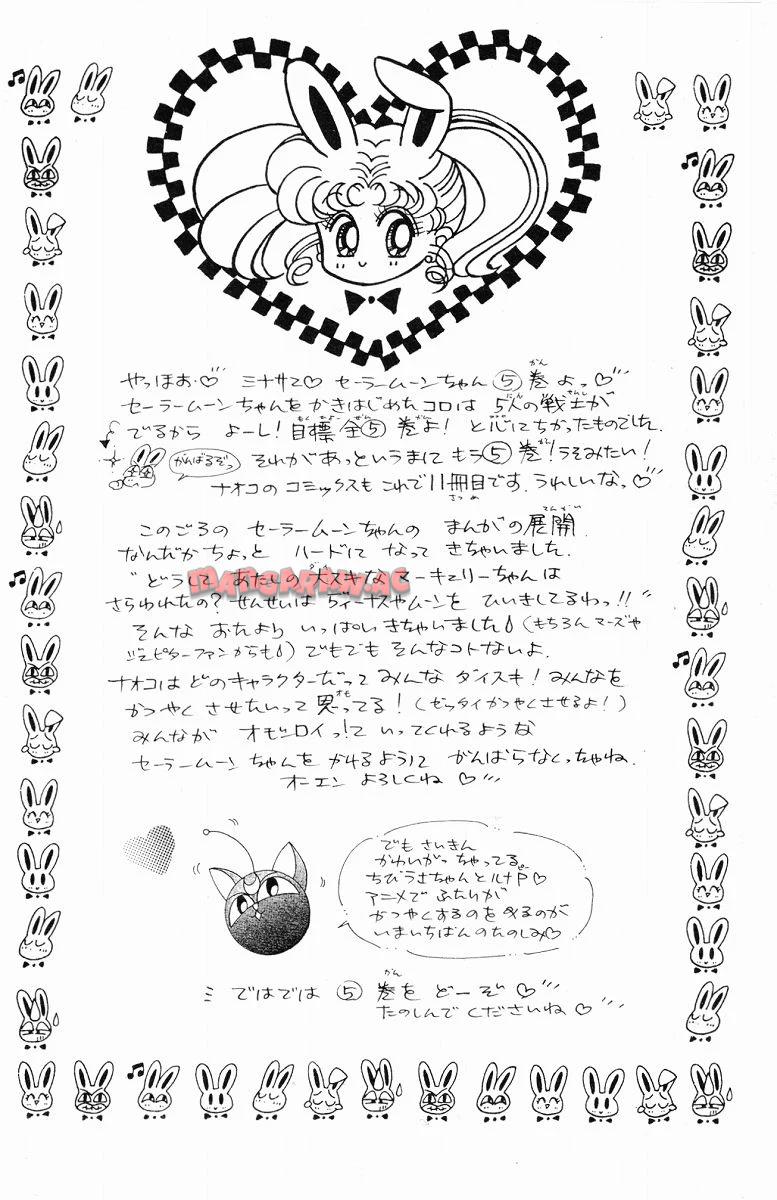 やっほお・♡ ミナサマ♡ セーラームーンちゃん⑤巻よっ♡
セーラームーンちゃんをかきはじめたコロは 5人の戦士が
でるから よーし！目標全⑤巻よ！と心にちかったものでした。
がんばるぞっ
それがあっというまに もう⑤巻！うるみたい！
ナオコのコミックスも これで11冊目です。うれしいなっ♡
このごろの セーラームーンちゃんの まんがの展開
なんだかちょっと ハードに なって きちゃいました。
"どうして あたしの 大スキな マーキュリーちゃんは
さらわれたの？せんせいは ヴィーナスやムーンを ひいきしてるわっ!!"
そんな おたより いっぱいきちゃいました（もちろん マーズや
ジュピターファンからも）でもでも そんなコトないよ。
ナオコは どのキャラクターだって みんな ダイスキ！みんなを
かつやく させたいって 思ってる！（ゼッタイかつやくさせるよ！）
みんなが オモシロイっ！て いってくれるような
セーラームーン ちゃんを かけるように がんばらなくっちゃね。
オーエン よろしくね ♡
MANGARAW.AC
でも さいきん
かわいがっ ちゃってる。
ちびうさちゃんとルナP♡
アニメで ふたりが
かつやくするのを みるのが
いまいちばんのたのしみ♡
ミ ではでは ⑤巻を どーぞ♡
たのしんで くださいね♡